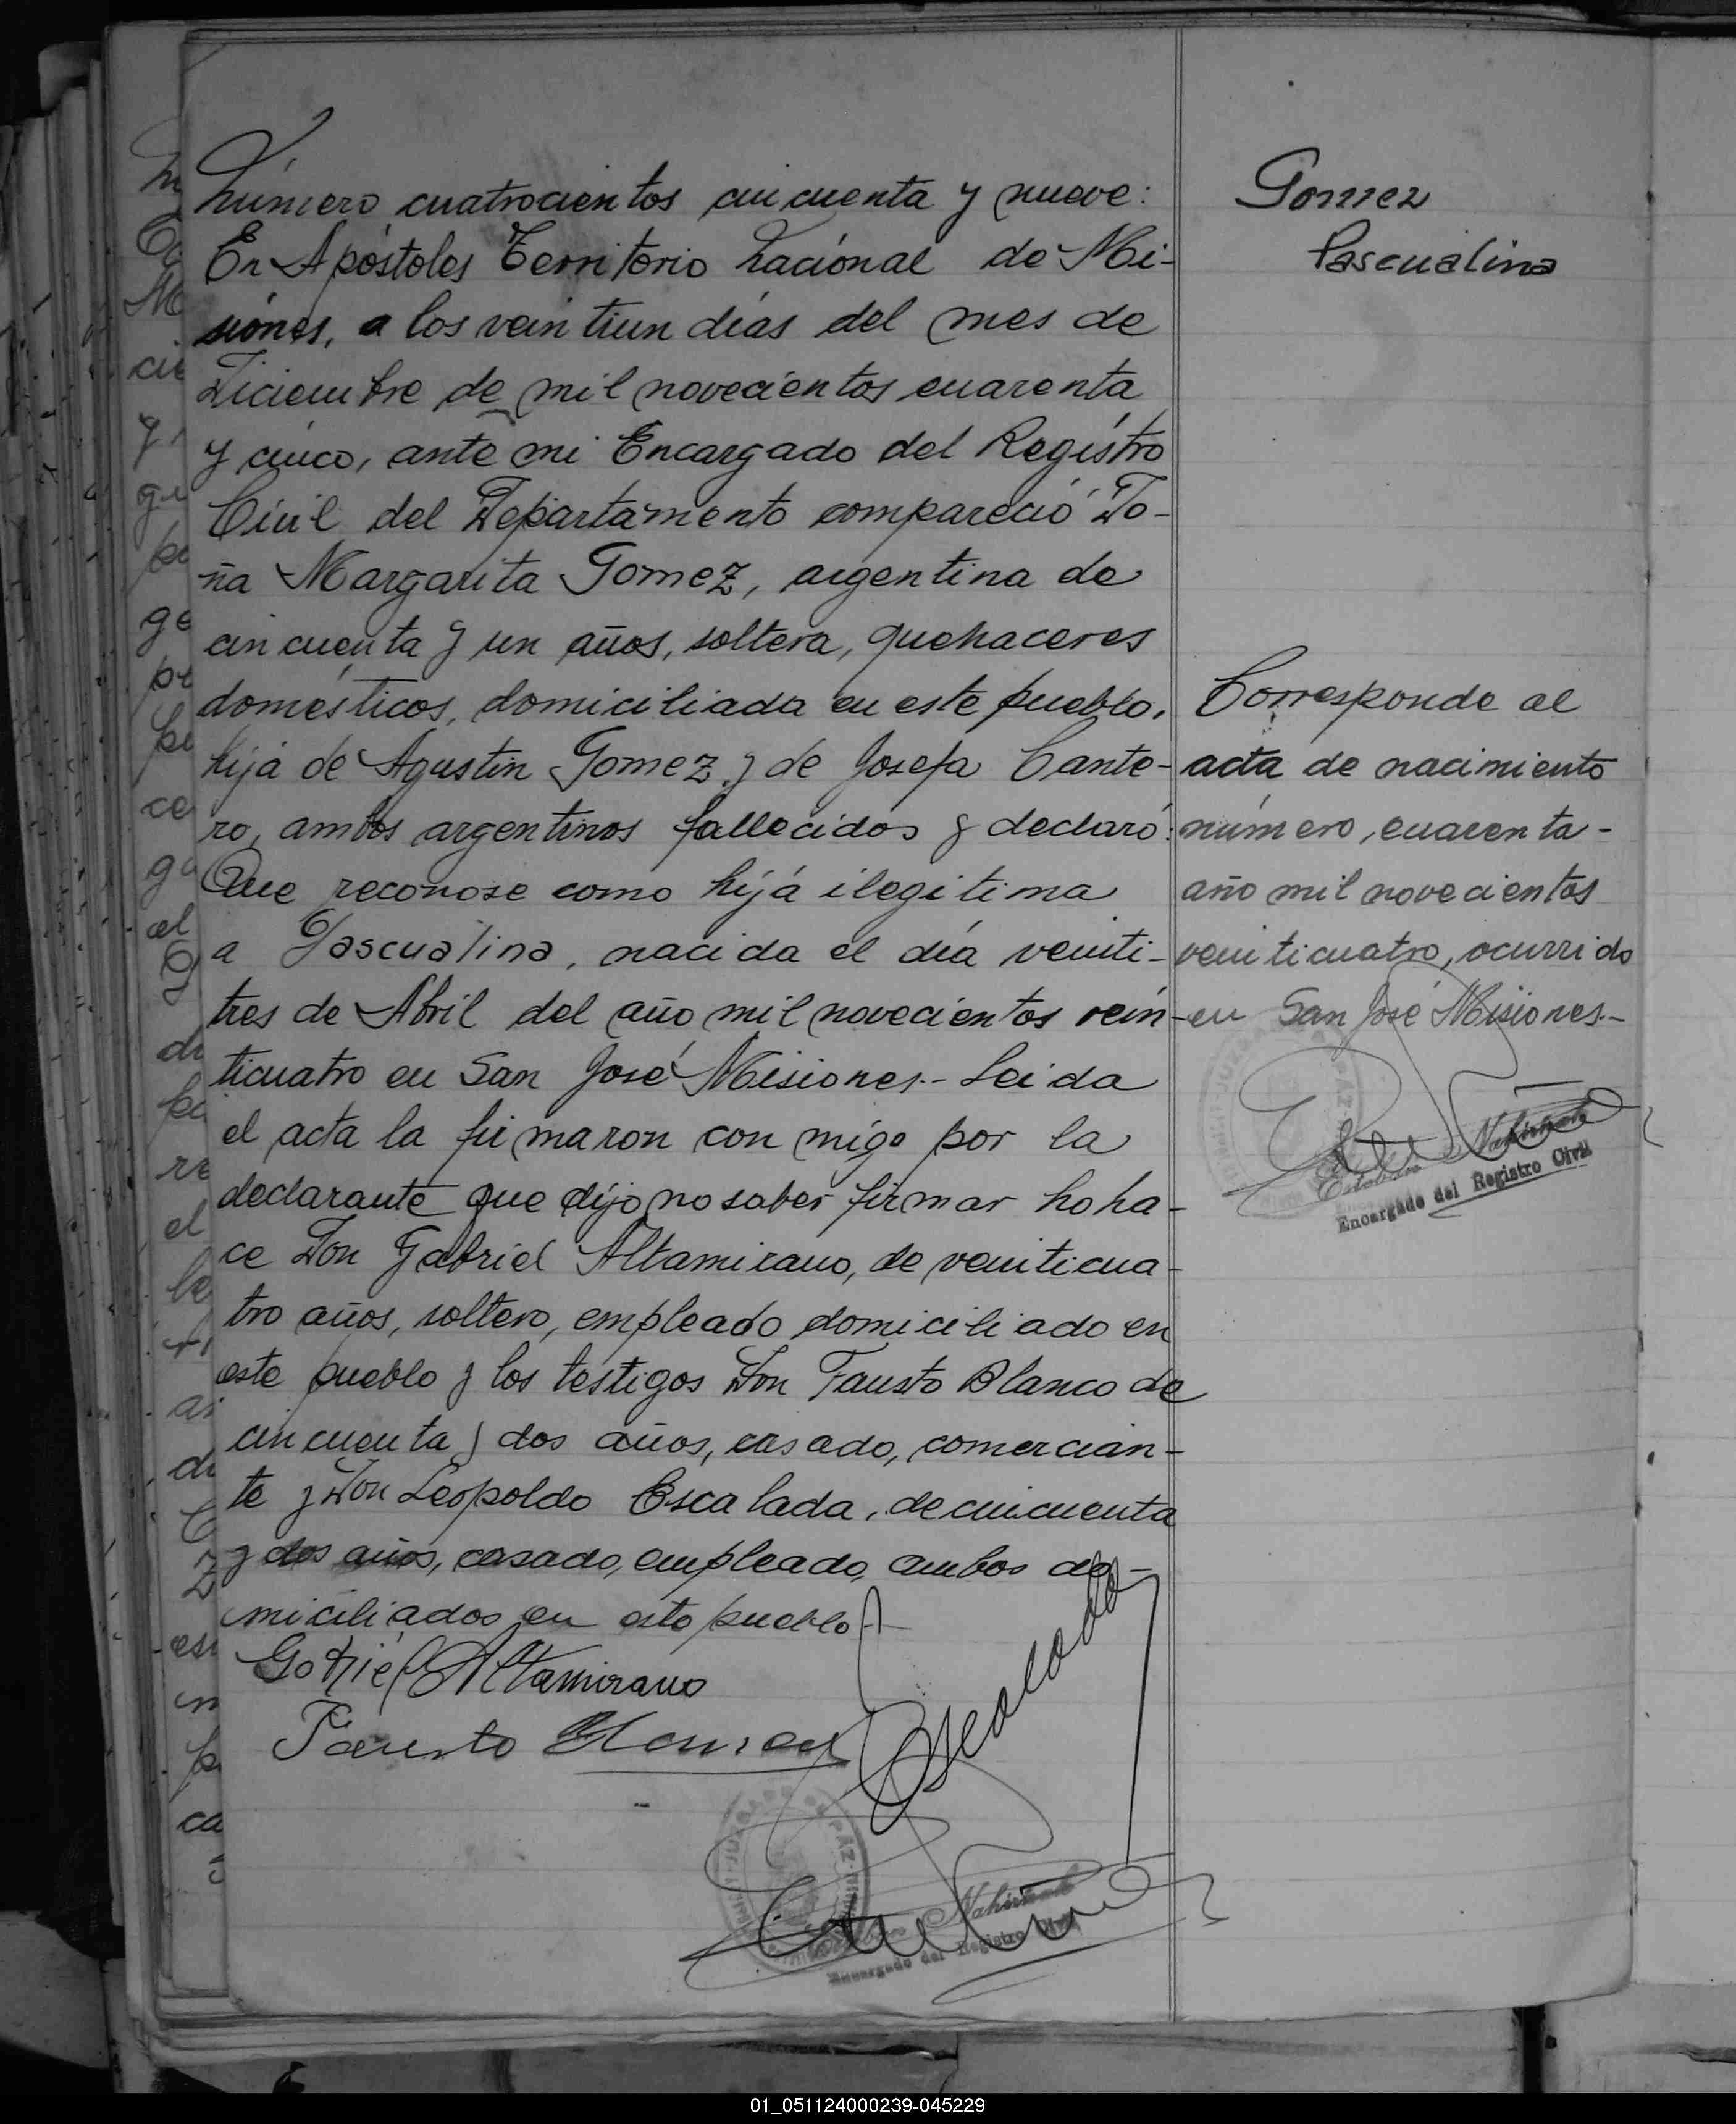 Número cuatrocientos cincuenta y nueve:
En Apóstoles Territorio Nacional de Mi-
siones, a los veintiun días del mes de
Diciembre de mil novecientos cuarenta
y cinco, ante mi Encargado del Registro
Civil del Departamento compareció Do-
ña Margarita Gomez, argentina de
cincuenta y un años, soltera, quehaceres
domésticos, domiciliada en este pueblo,
hija de Agustin Gomez y de Josefa Cante-
ro, ambos argentinos fallecidos y declaró:
Que reconose como hija ilegitima
a Pascualina, nacida el día veinti-
tres de Abril del año mil novecientos vein-
ticuatro en San José Misiones.- Leida
el acta la firmaron con migo por la
declarante que dijo no saber firmar lo ha-
ce Don Gabriel Altamirano, de veinticua-
tro años, soltero, empleado domiciliado en
este pueblo y los testigos Don Fausto Blanco de
cincuenta y dos años, casado, comercian-
te y Don Leopoldo Escalada, de cincuenta
y dos años, casado, empleado, ambos do-
miciliados en este pueblo
Gabriel Altamirano
Fausto Blanco
Escalada
Encargado del Registro Civil
Gomez
Pascualina
Corresponde al
acta de nacimiento
número, cuarenta-
año mil novecientos
veinticuatro, ocurrido
en San José Misiones.-
Encargado del Registro Civil
01_051124000239-045229